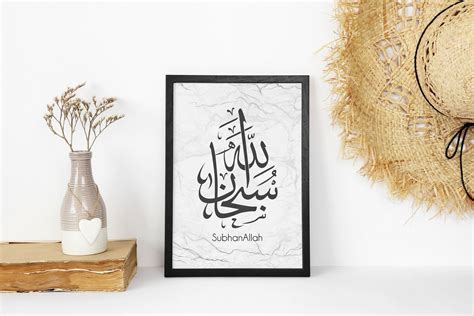 سُبْحَانَ اللَّه
SubhanAllah